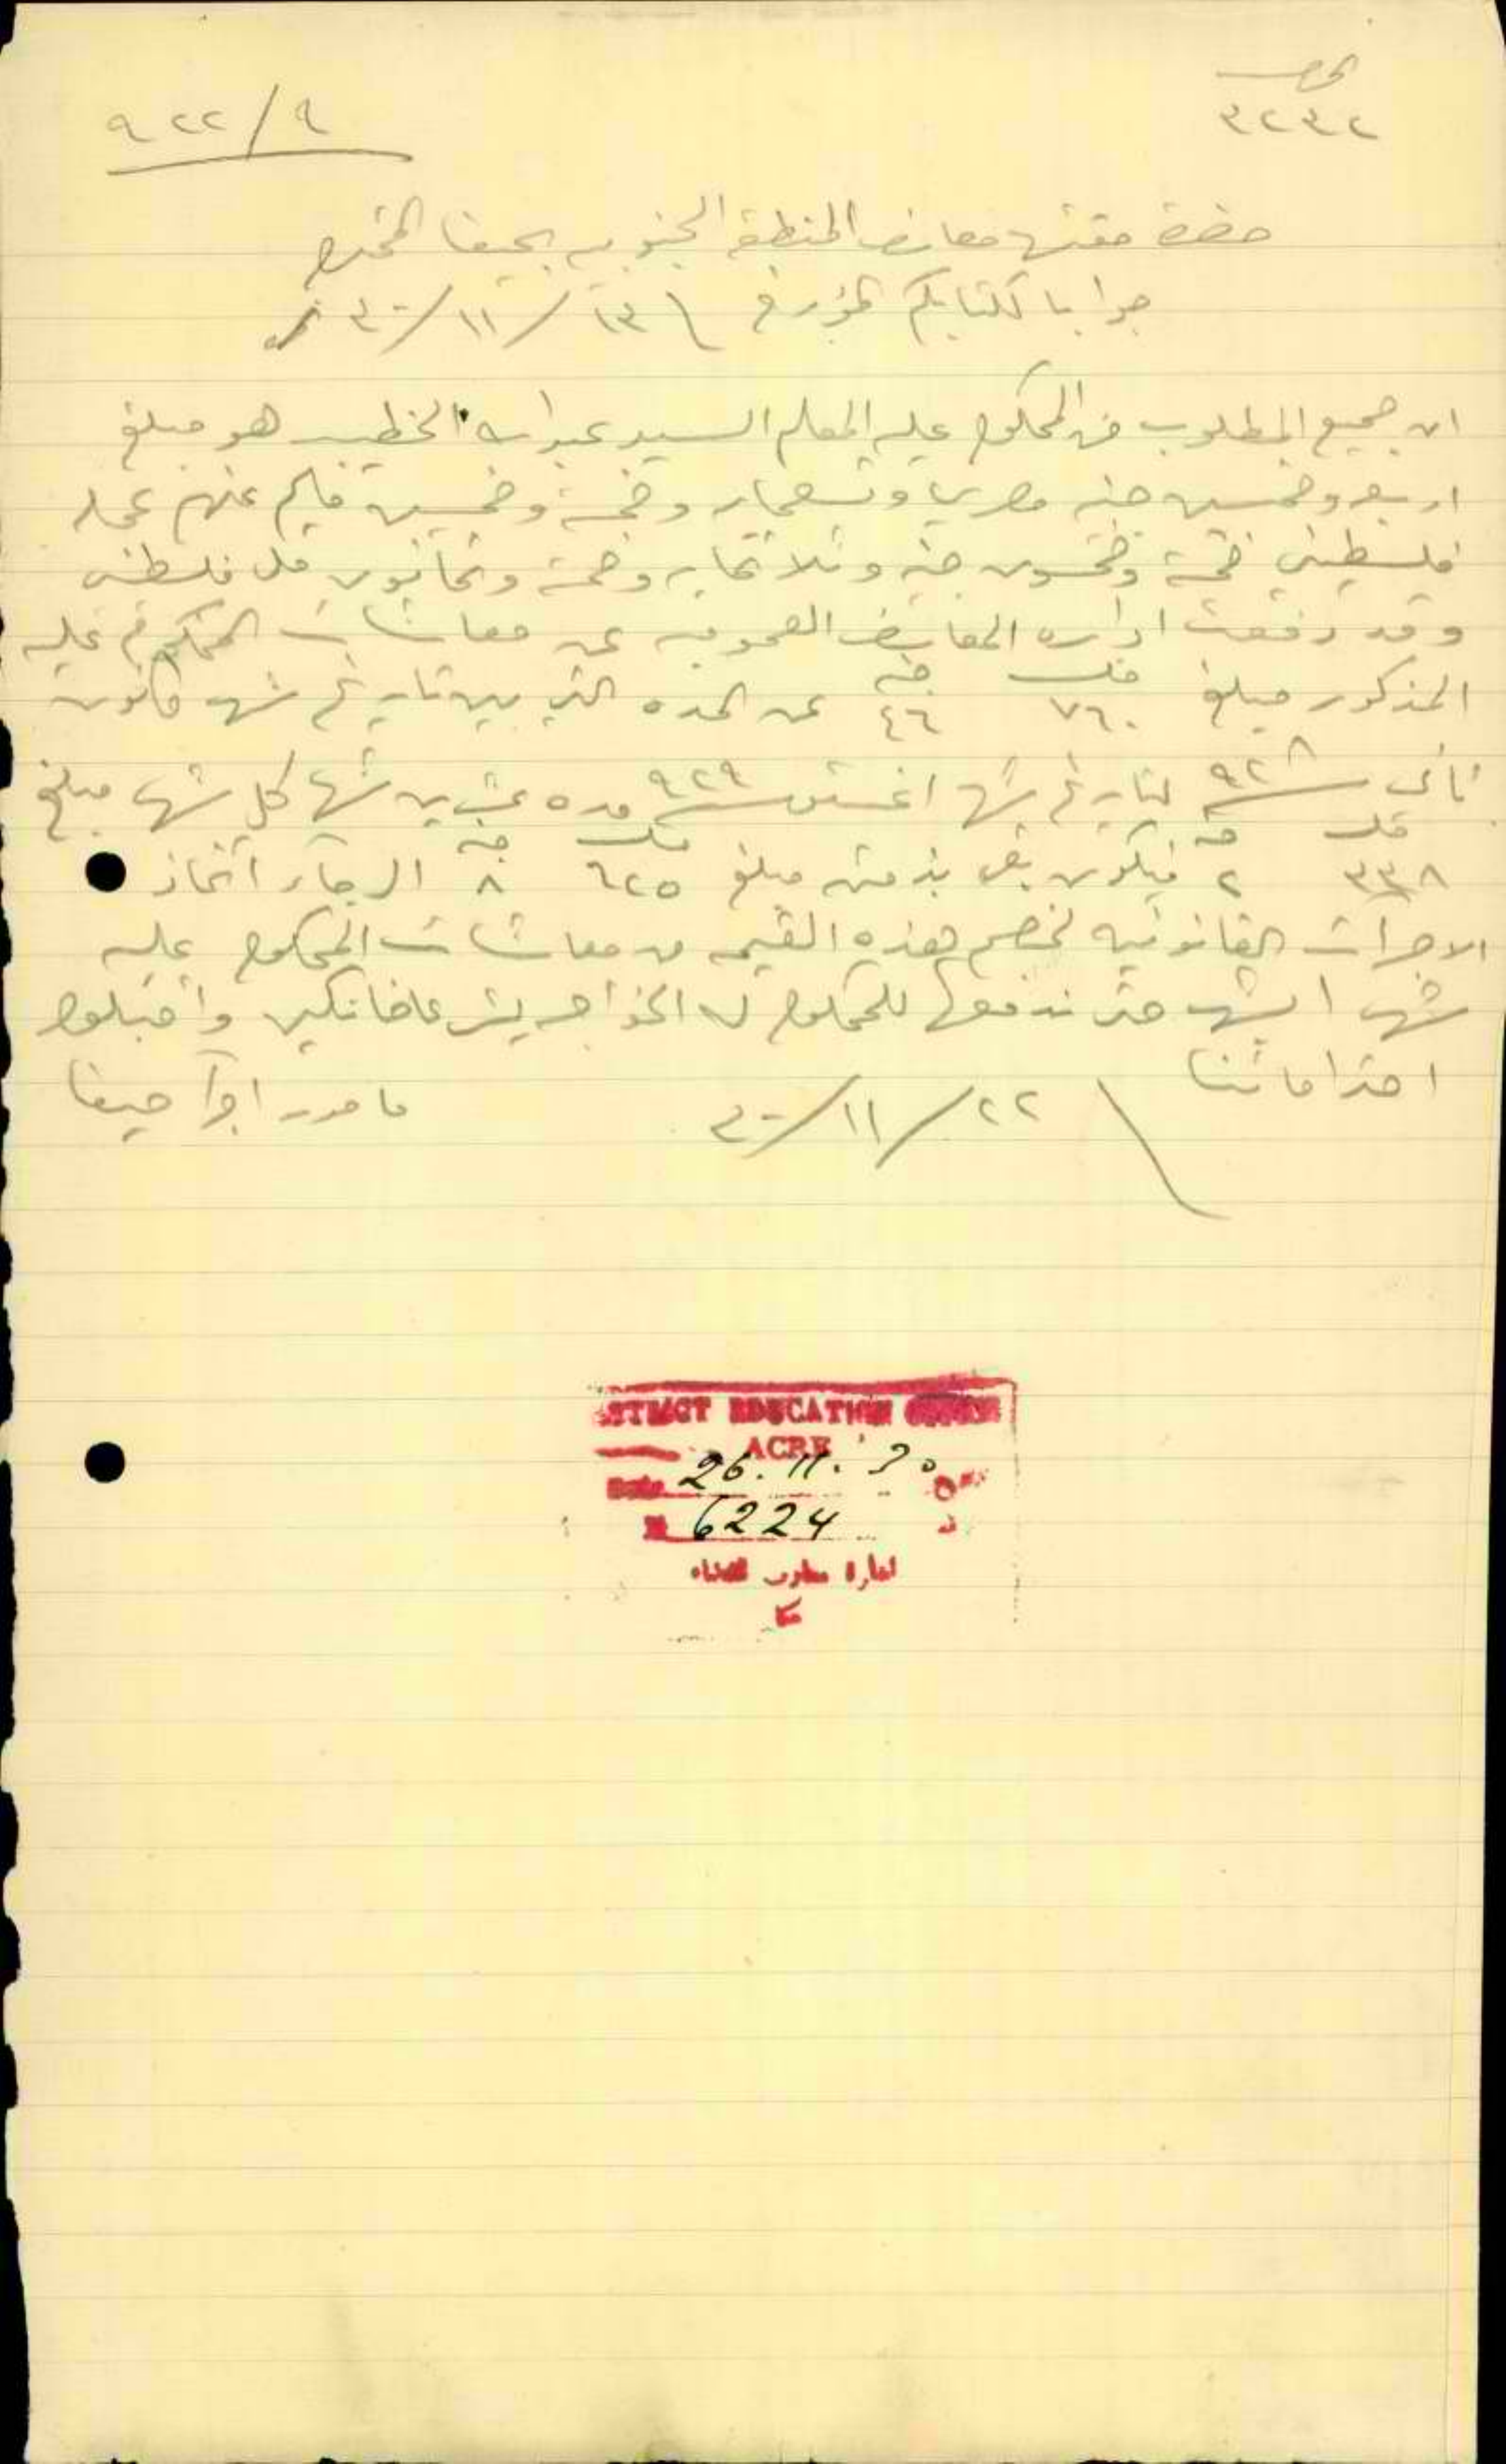 ٣٢٣٢
٩٢٢/٩
حضرة مفتش معارف المنطقة الجنوبيه بحيفا المحترم
جوابا لكتابكم المؤرخ ١٣/١١/٣٠
ان جميع المطلوب من المحكوم عليه المعلم السيد عبدالله الخطيب هو مبلغ
اربعه وخمسين جنيه مصري وتسعمايه وخمسة وخمسين مليم عنهم عمله
فلسطيني خمسة وخمسون جنيه وثلاثمايه وخمسة وثمانون مل فلسطيني
وقد دفعت اداره المعارف العموميه عن معاشات المحكوم عليه
المذكور مبلغ ٧٦٠ مل ٤٦ جنيه عن المده التي بين تاريخ شهر كانون
ثاني سنة ٩٢٨ لتاريخ شهر اغستس سنة ٩٢٩ مده عشرين شهر كل شهر مبلغ
٣٣٨ مل ٢ جنيه فيكون بقى بذمته مبلغ ٦٢٥ مل ٨ جنيه الرجاء اتخاذ
الاجراءات القانونيه لخصم هذه القيمه من معاشات المحكوم عليه
شهر ا بشهر حتى ندفعها للمحكوم له الخواجه واقبلوا
احتراماتنا
٢٢/١١/٣٠
مامور اجرا حيفا
DISTRICT EDUCATION OFFICE
ACRE
Date 26.11.30
6224
ادارة معارف القضاء
عكا